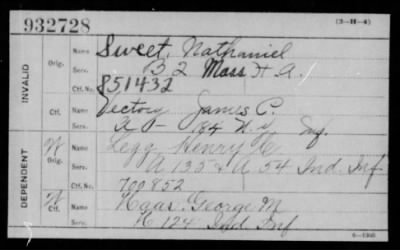 932728
(3—H—4)
INVALID
Orig.
Name Sweet, Nathaniel
Serv. B 2 Mass H A.
Ctf. No. 851432
Ctf.
Name Vectory James C.
Serv. A – 194 N Y Inf.
DEPENDENT
W Orig.
Name Legg Henry C
Serv. A 135 & A 54 Ind Inf
Ctf. No. 700852
W Ctf.
Name Haas, George M
Serv. K 124 Ind Inf